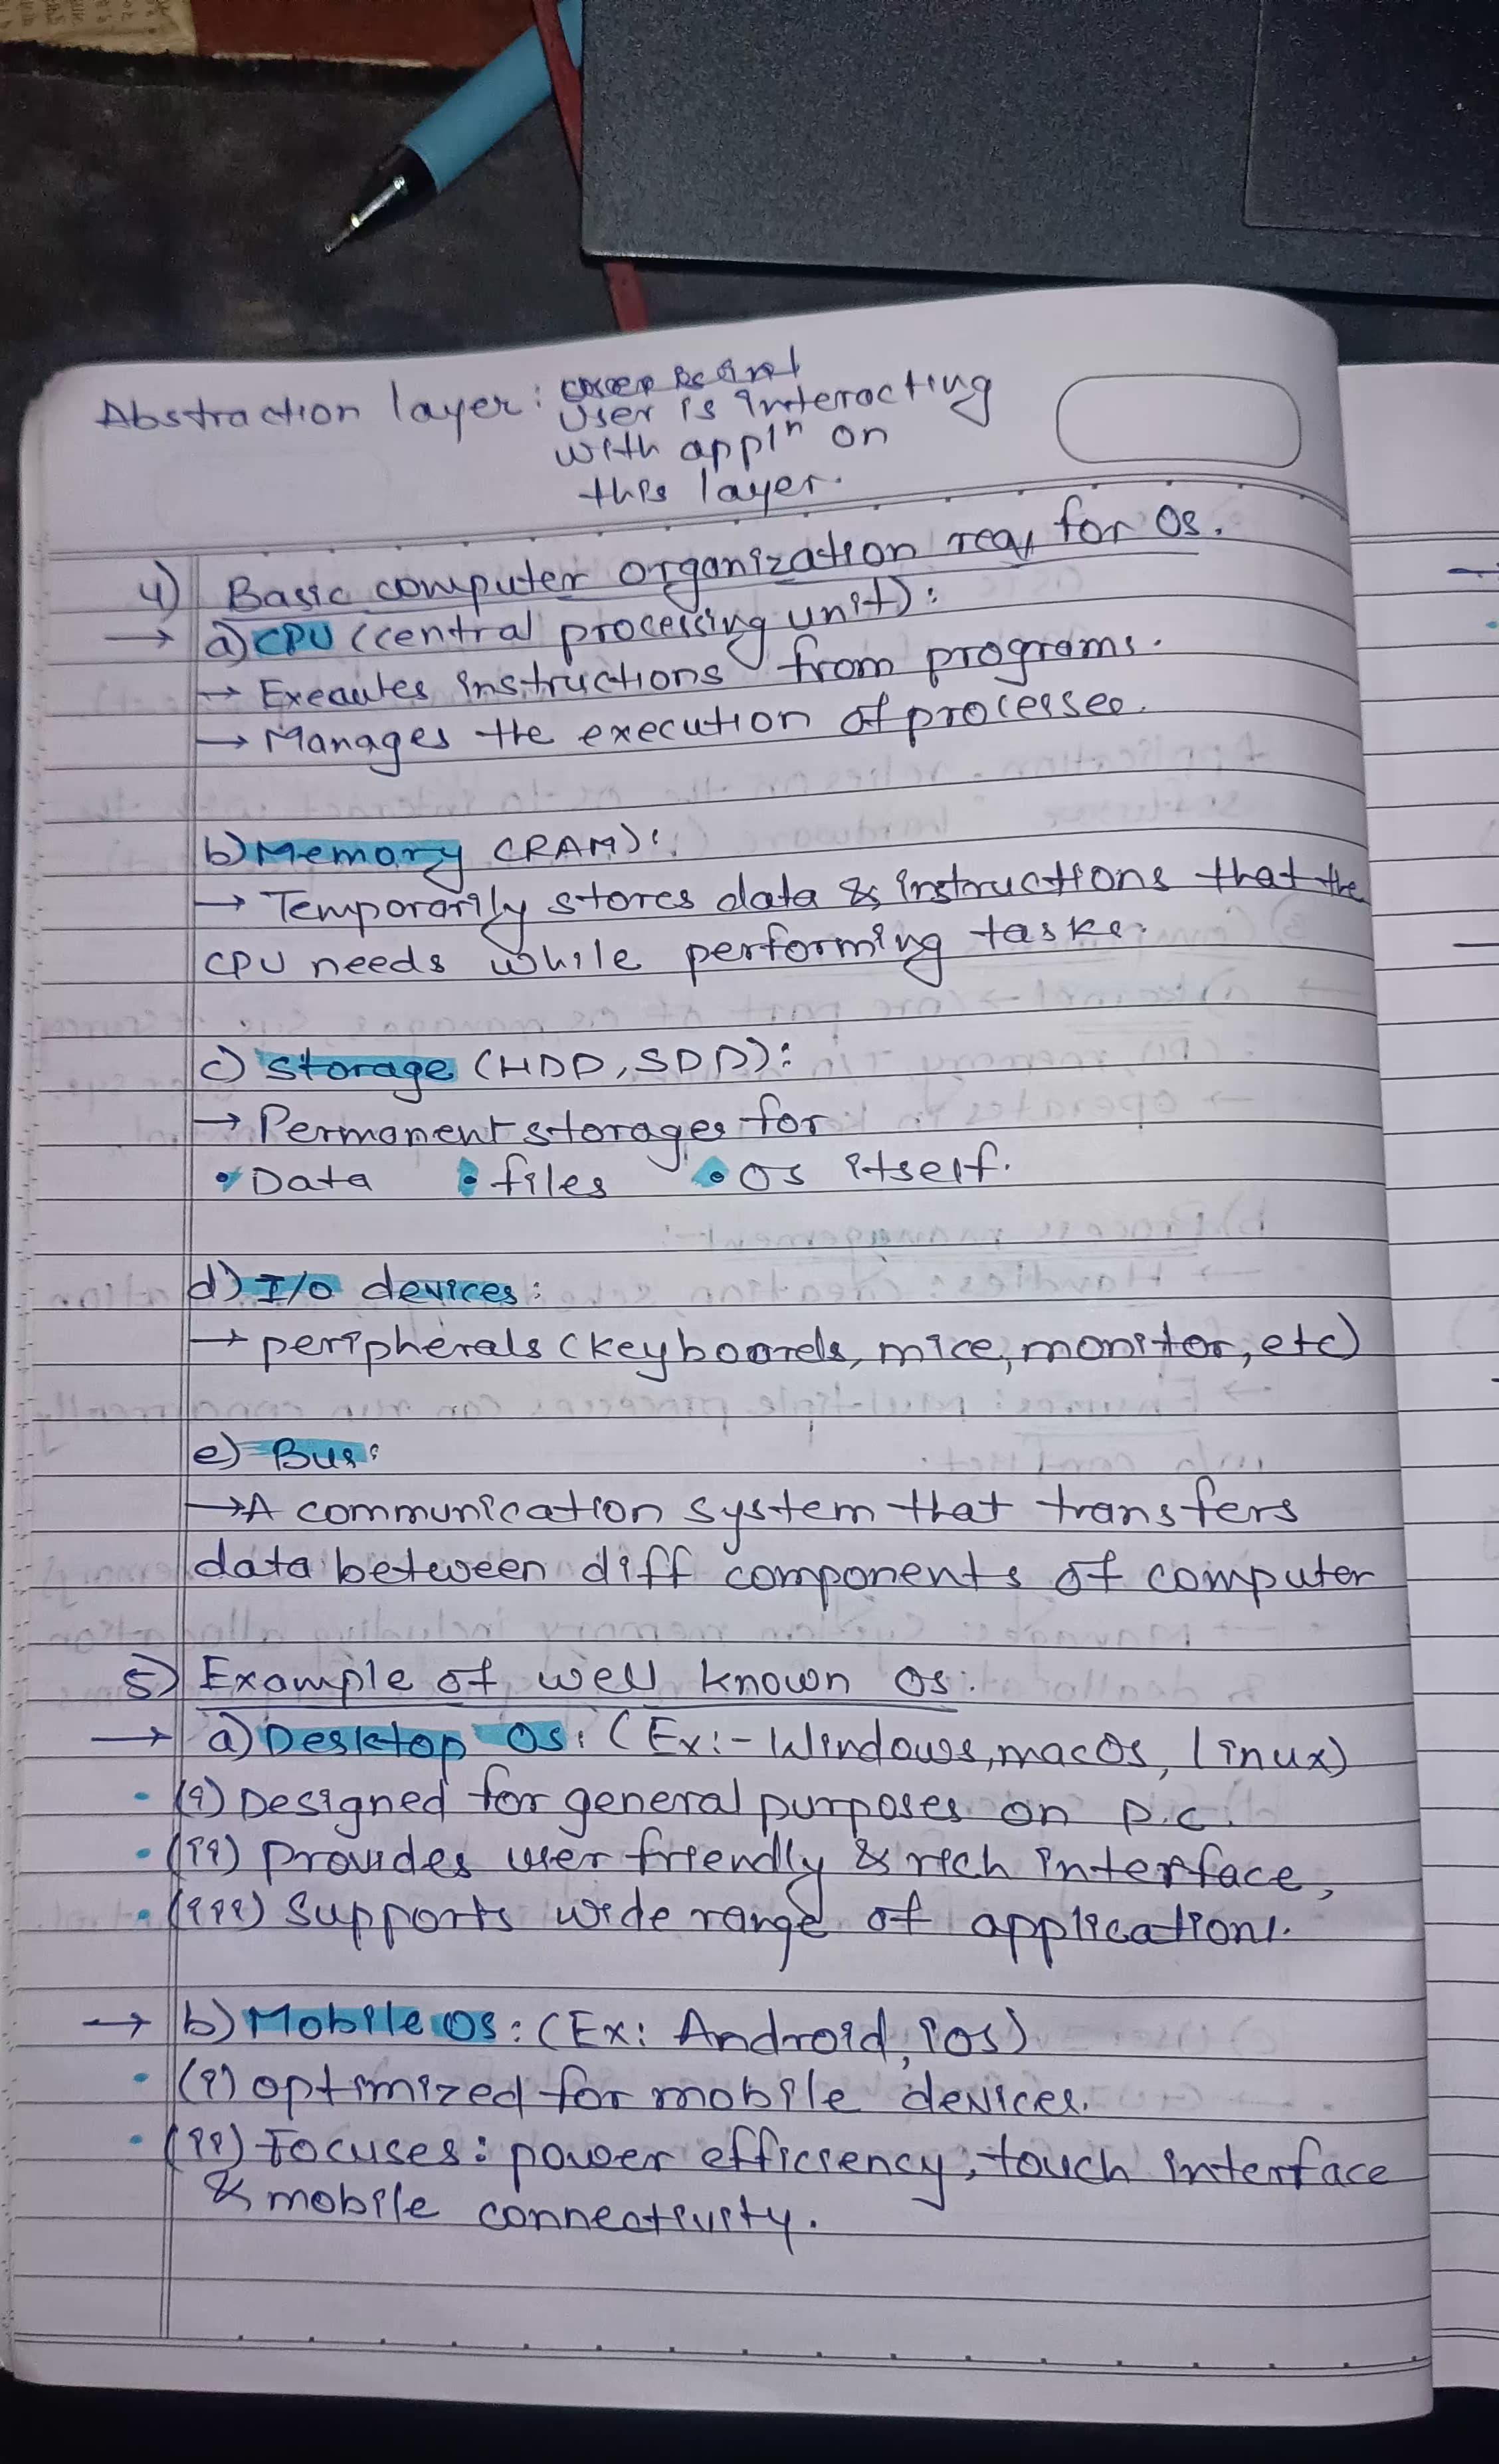 Abstraction layer:
User is interacting
with applⁿ on
this layer.
4) Basic computer organization req for OS.
→ a) CPU (central processing unit):
→ Executes instructions from programs.
→ Manages the execution of processes.
b) Memory (RAM):
→ Temporarily stores data & instructions that the
CPU needs while performing tasks.
c) Storage (HDD, SDD):
→ Permanent storages for
• Data • files • OS itself.
d) I/O devices:
→ peripherals (keyboards, mice, monitor, etc)
e) Bus:
→ A communication system that transfers
data between diff components of computer
5) Example of well known OS.
→ a) Desktop OS: (Ex:- Windows, macOS, Linux)
• (i) Designed for general purposes on p.c.
• (ii) provides user friendly & rich interface,
• (iii) Supports wide range of applications.
→ b) Mobile OS: (Ex: Android, ios)
• (i) optimized for mobile devices.
• (ii) Focuses: power efficiency, touch interface
& mobile connectivity.